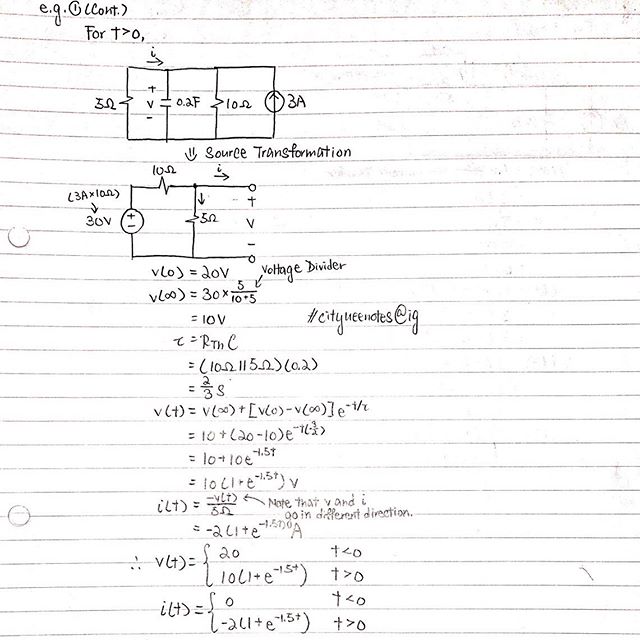 e.g. ① (Cont.)
For t>0,
i
5Ω + v - 0.2F 10Ω 3A
⇓ Source Transformation
10Ω i
(3A×10Ω)
30V 5Ω + v -
v(0) = 20V Voltage Divider
v(∞) = 30 × 5/(10+5)
= 10V #cityueenotes@ig
τ = R_Th C
= (10Ω||5Ω)(0.2)
= 2/3 s
v(t) = v(∞) + [v(0) - v(∞)] e^(-t/τ)
= 10 + (20-10)e^(-t(3/2))
= 10 + 10e^(-1.5t)
= 10(1+e^(-1.5t)) V
i(t) = -v(t)/5Ω ← Note that v and i
go in different direction.
= -2(1+e^(-1.5t)) A
∴ v(t) = { 20 t<0
10(1+e^(-1.5t)) t>0
i(t) = { 0 t<0
-2(1+e^(-1.5t)) t>0